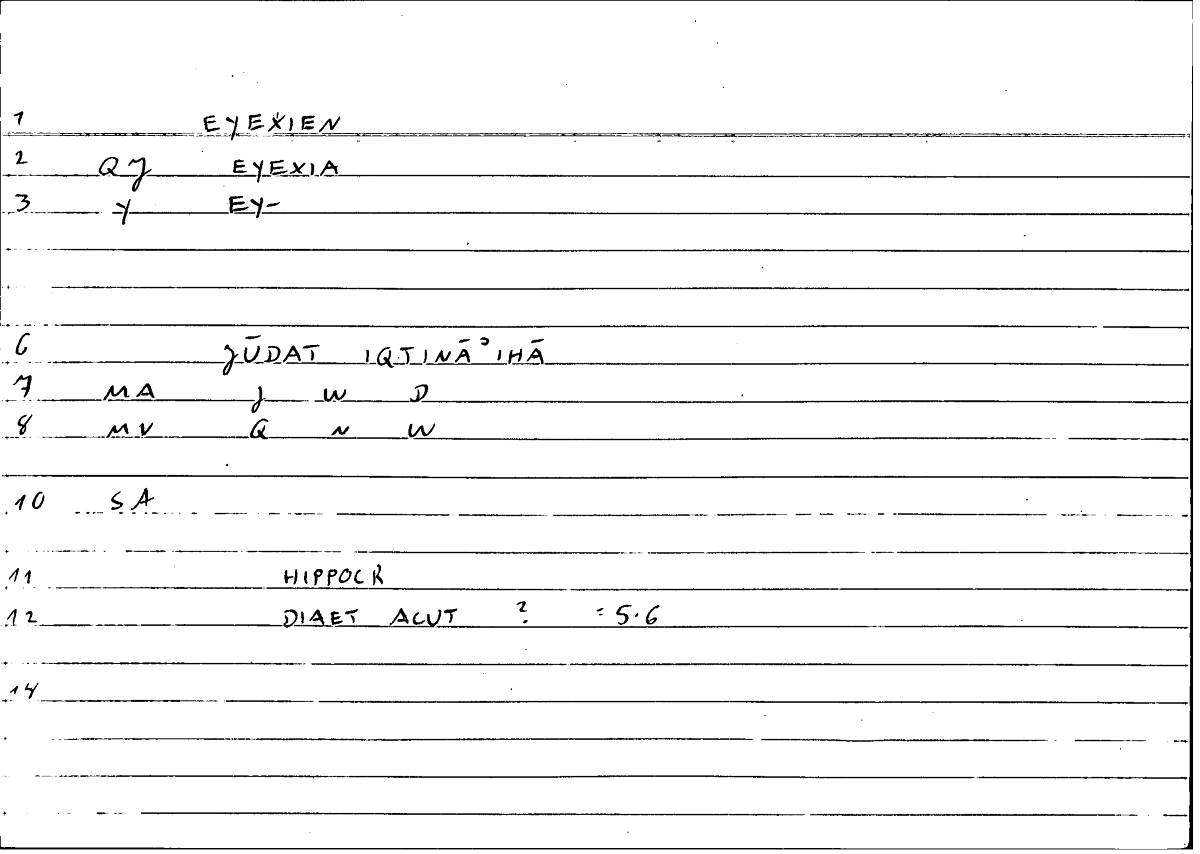 1 EYEXIEN
2 QJ EYEXIA
3 Y EY-
6 JŪDAT IQTINĀʾIHĀ
7 MA J W D
8 MV Q N W
10 SA
11 HIPPOCR
12 DIAET ACUT ? =5.6
14